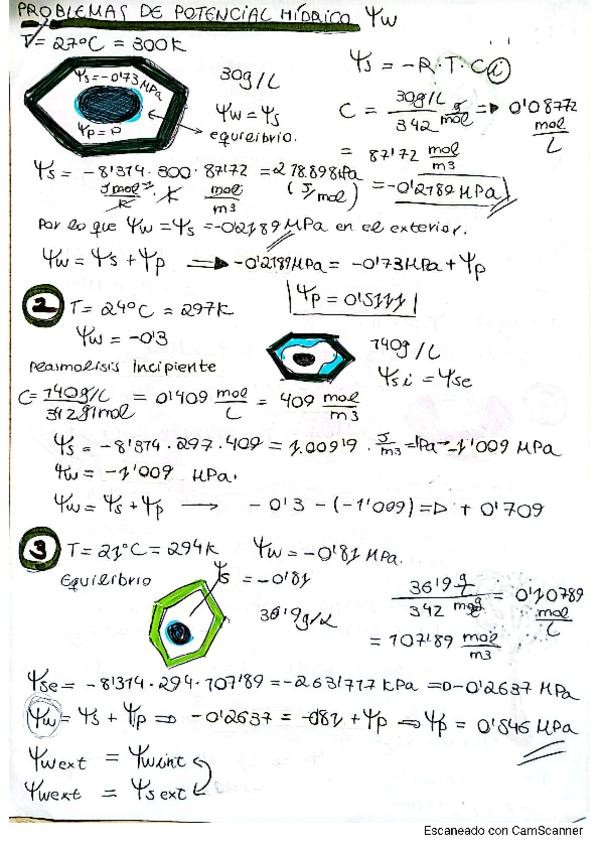 PROBLEMAS DE POTENCIAL HÍDRICO Ψw
T = 27°C = 300K
Ψs = -0'73 MPa
Ψp = 0
30g/L
Ψw = Ψs
equilibrio.
Ψs = -R·T·C i
C = 30g/L / 342 g/mol => 0'08772 mol/L
= 87'72 mol/m3
Ψs = -8'314 · 300 · 87'72 = 218.898 kPa = -0'2189 MPa
J mol⁻¹/K · K mol/m3 (J/mol)
Por lo que Ψw = Ψs = -0'2189 MPa en el exterior.
Ψw = Ψs + Ψp => -0'2189 MPa = -0'73 MPa + Ψp
Ψp = 0'5111
2 T = 24°C = 297K
Ψw = -0'3
Plasmolisis incipiente
140g/L
Ψsi = Ψse
C = 140g/L / 342 g/mol = 0'409 mol/L = 409 mol/m3
Ψs = -8'314 · 297 · 409 = 1.009'9 · J/m3 = kPa → -1'009 MPa
Ψw = -1'009 MPa.
Ψw = Ψs + Ψp → -0'3 - (-1'009) => + 0'709
3 T = 21°C = 294K Ψw = -0'81 MPa.
Equilibrio Ψs = -0'81
36'9g/L
36'9 g/L / 342 g/mol = 0'10789 mol/L
= 107'89 mol/m3
Ψse = -8'314 · 294 · 107'89 = -263'717 kPa => -0'2637 MPa
Ψw = Ψs + Ψp => -0'2637 = -0'81 + Ψp => Ψp = 0'546 MPa
Ψw ext = Ψw int
Ψw ext = Ψs ext
Escaneado con CamScanner